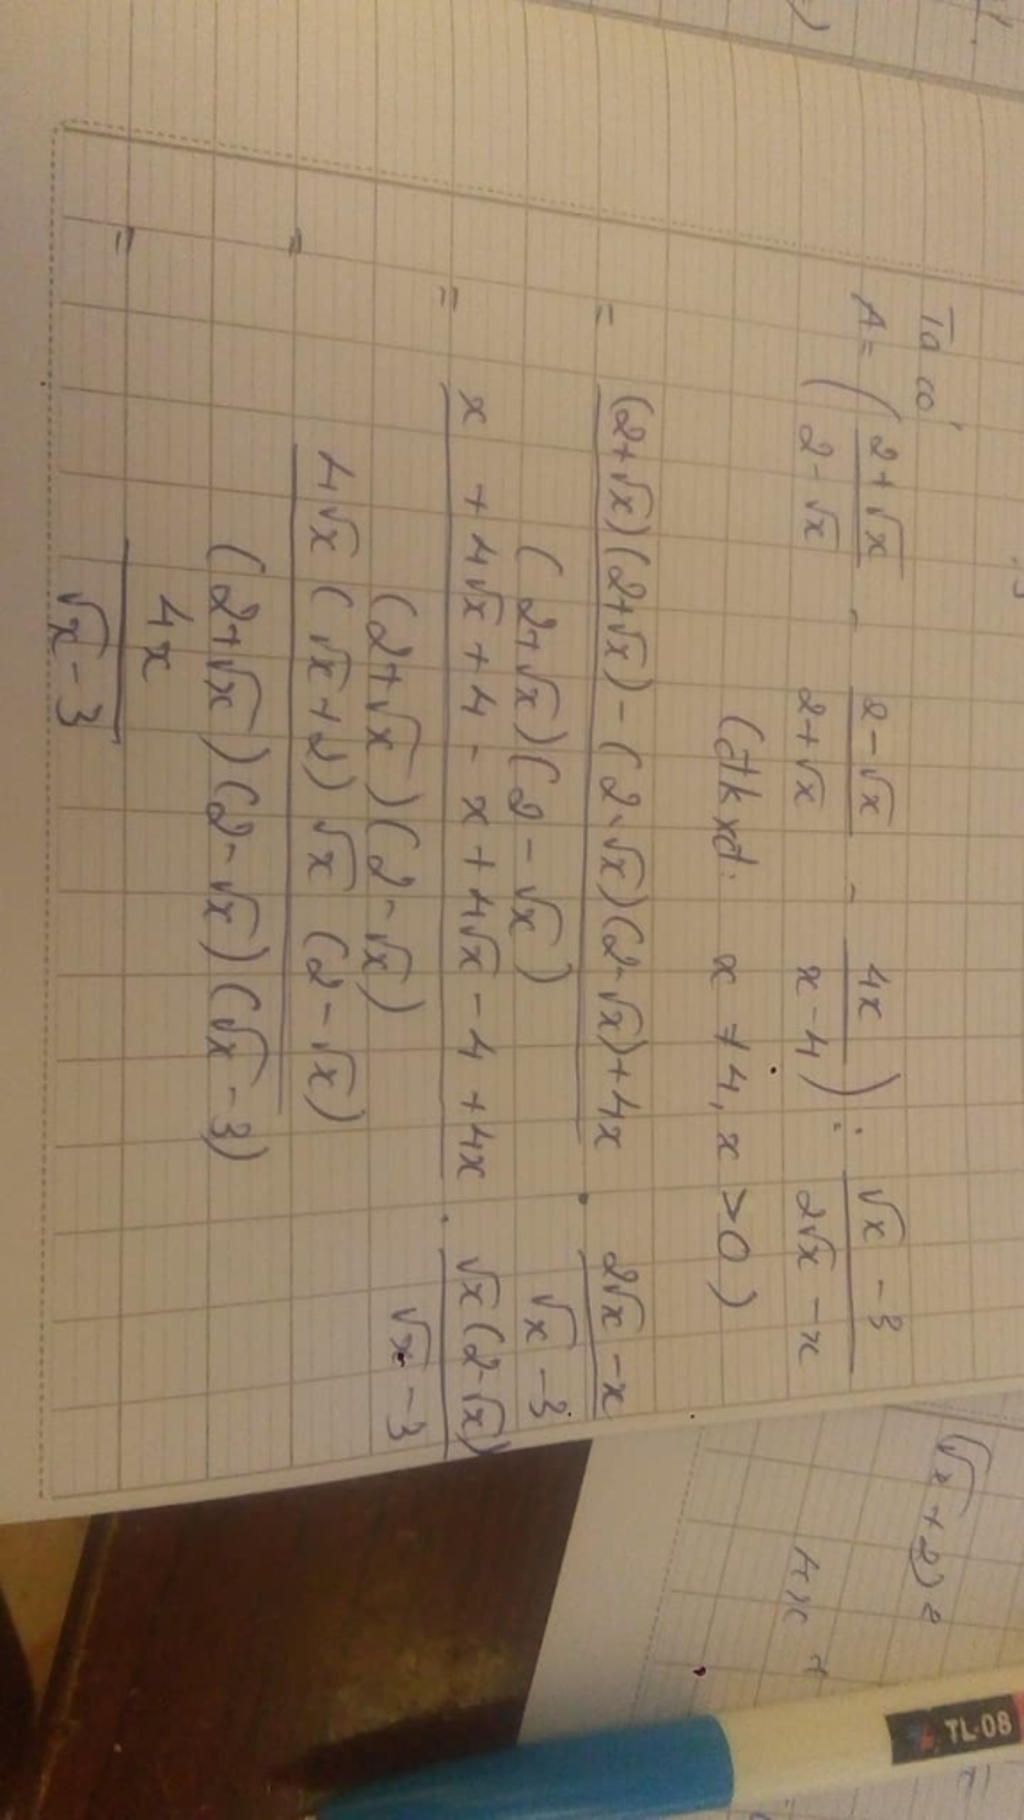 Ta có
A = ( (2+√x)/(2-√x) - (2-√x)/(2+√x) - 4x/(x-4) ) : (√x - 3)/(2√x - x)
(đkxđ: x ≠ 4, x > 0)
= ((2+√x)(2+√x) - (2-√x)(2-√x) + 4x)/((2+√x)(2-√x)) . (2√x - x)/(√x - 3)
= (x + 4√x + 4 - x + 4√x - 4 + 4x)/((2+√x)(2-√x)) . (√x(2-√x))/(√x - 3)
= (4√x(√x+2)√x(2-√x))/((2+√x)(2-√x)(√x-3))
= 4x/(√x - 3)
(√x + 2)2
4x +
TL-08